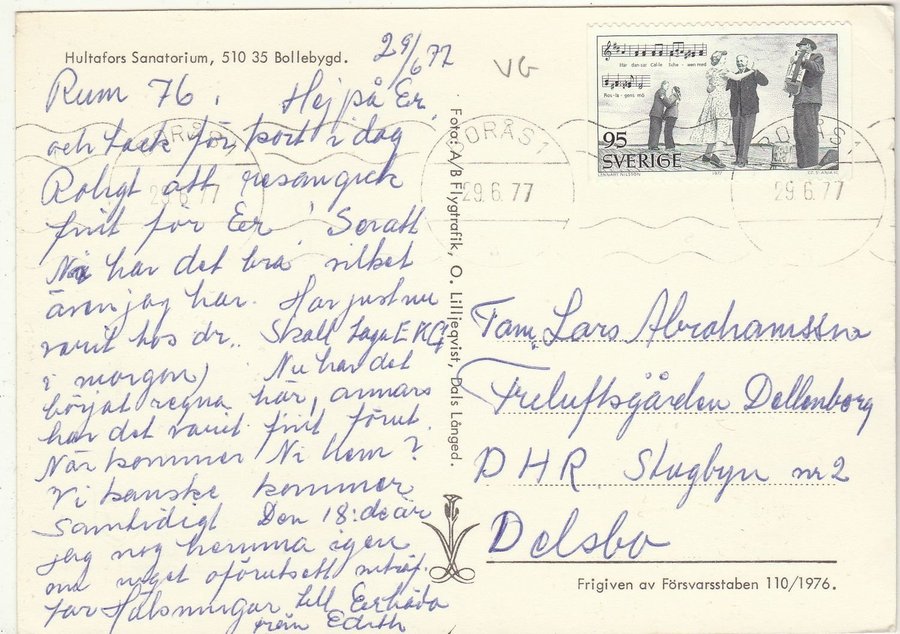 Hultafors Sanatorium, 510 35 Bollebygd.
29/6 77
VG
Rum 76. Hej på Er
och tack för kort i dag
Roligt att resan gick
fint för Er! Så att
Ni har det bra vilket
även jag har. Har just nu
varit hos dr.. Skall taga EKG
i morgon) Nu har det
börjat regna här, annars
har det varit fint förut.
När kommer Ni hem?
Vi kanske kommer
samtidigt Den 18:de är
jag nog hemma igen
om något oförutsett inträf-
far Hälsningar till Er båda
från Edith
Foto: A/B Flygtrafik, O. Lilljeqvist, Dals Långed.
Här dansar Calle Schewen med
Ros-la-gens mö
95
SVERIGE
LENNART NILSSON 1977
BORÅS 1
29.6.77
BORÅS 1
29.6.77
BORÅS 1
29.6.77
Fam. Lars Abrahamsson
Friluftsgården Dellenborg
DHR Stugbyn nr 2
Delsbo
Frigiven av Försvarsstaben 110/1976.